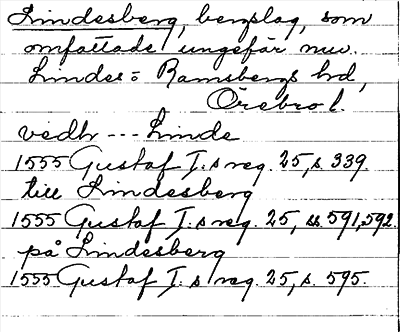 Lindesberg, bergslag, som
omfattade ungefär nuv.
Lindes= Ramsbergs hd,
Örebro l.
vedh --- Linde
1555 Gustaf I:s reg. 25, s. 339.
till Lindesberg
1555 Gustaf I:s reg. 25, ss. 591, 592.
på Lindesberg
1555 Gustaf I:s reg. 25, s. 595.